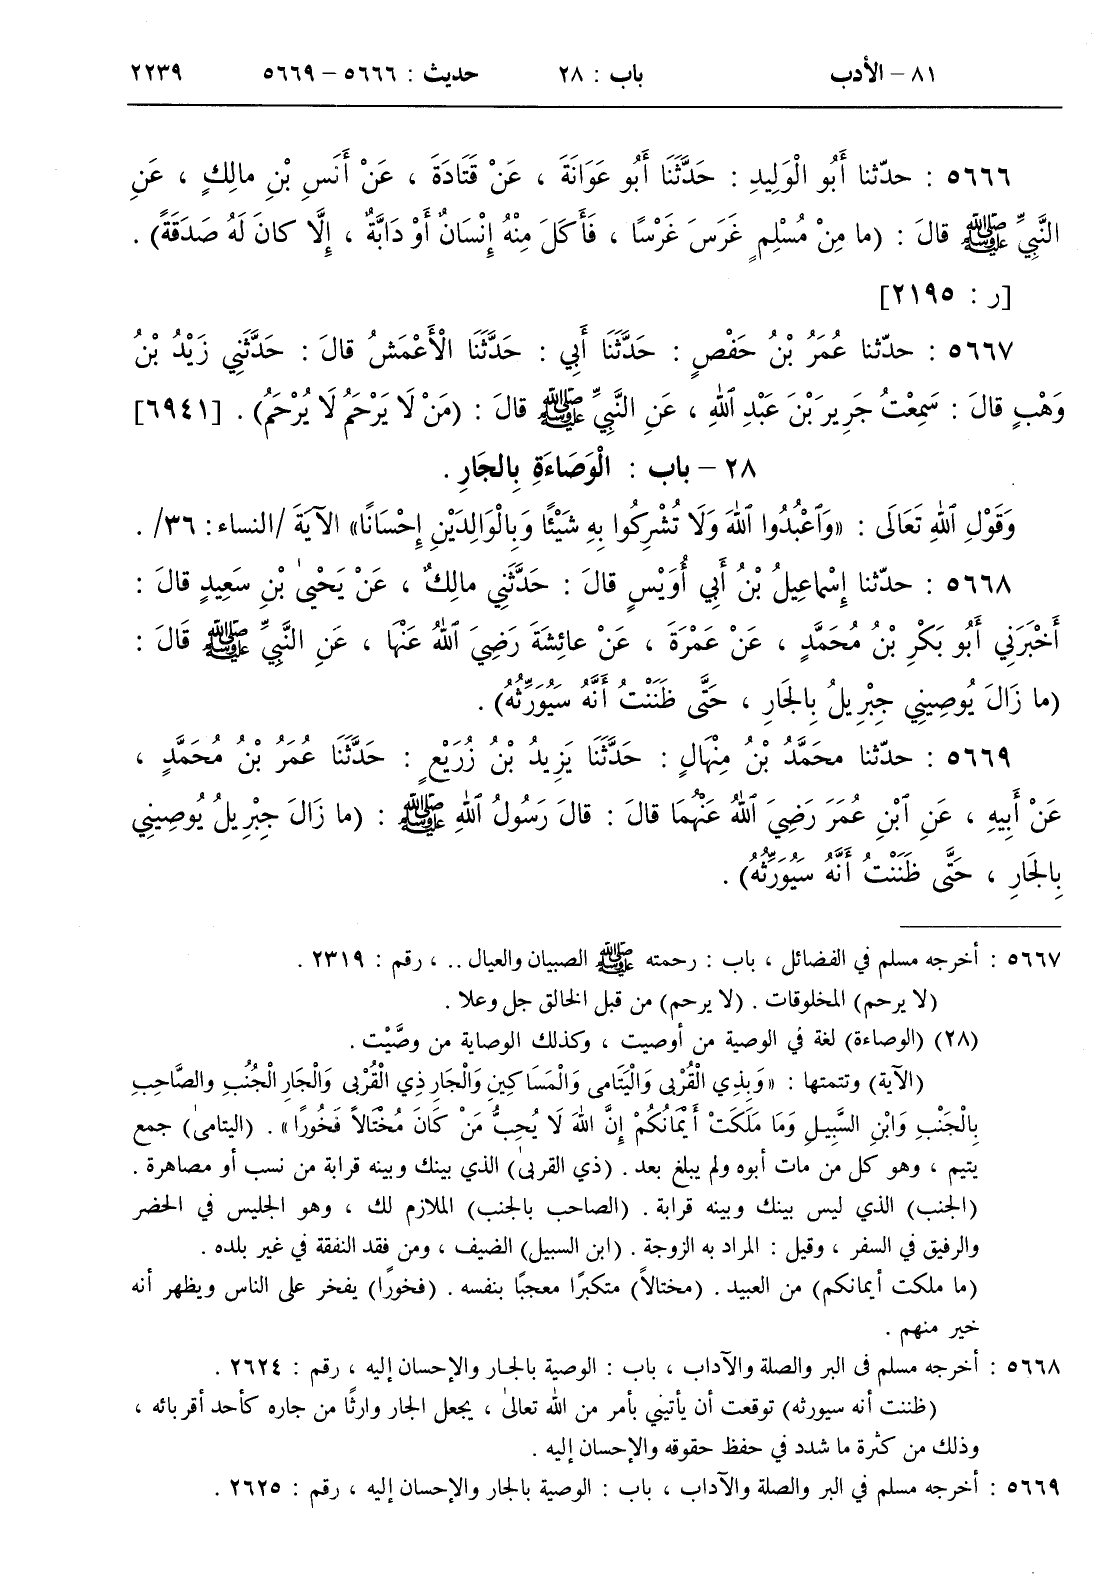 ٨١ – الأدب باب : ٢٨ حديث : ٥٦٦٦ – ٥٦٦٩ ٢٢٣٩
٥٦٦٦ : حدّثنا أَبُو الْوَلِيدِ : حَدَّثَنَا أَبُو عَوَانَةَ ، عَنْ قَتَادَةَ ، عَنْ أَنَسِ بْنِ مالِكٍ ، عَنِ
النَّبِيِّ ﷺ قالَ : (ما مِنْ مُسْلِمٍ غَرَسَ غَرْسًا ، فَأَكَلَ مِنْهُ إِنْسَانٌ أَوْ دَابَّةٌ ، إِلَّا كانَ لَهُ صَدَقَةً) .
[ر : ٢١٩٥]
٥٦٦٧ : حدّثنا عُمَرُ بْنُ حَفْصٍ : حَدَّثَنَا أَبِي : حَدَّثَنَا الْأَعْمَشُ قالَ : حَدَّثَنِي زَيْدُ بْنُ
وَهْبٍ قالَ : سَمِعْتُ جَرِيرَ بْنَ عَبْدِ ٱللهِ ، عَنِ النَّبِيِّ ﷺ قالَ : (مَنْ لَا يَرْحَمُ لَا يُرْحَمُ) . [٦٩٤١]
٢٨ – باب : الْوَصَاءَةِ بِالجَارِ .
وَقَوْلِ ٱللهِ تَعَالَى : «وَٱعْبُدُوا ٱللهَ وَلَا تُشْرِكُوا بِهِ شَيْئًا وَبِالْوَالِدَيْنِ إِحْسَانًا» الآيَةَ /النساء: ٣٦/ .
٥٦٦٨ : حدّثنا إِسْماعِيلُ بْنُ أَبِي أُوَيْسٍ قالَ : حَدَّثَنِي مالِكٌ ، عَنْ يَحْيىٰ بْنِ سَعِيدٍ قالَ :
أَخْبَرَنِي أَبُو بَكْرِ بْنُ مُحَمَّدٍ ، عَنْ عَمْرَةَ ، عَنْ عائِشَةَ رَضِيَ ٱللهُ عَنْهَا ، عَنِ النَّبِيِّ ﷺ قَالَ :
(ما زَالَ يُوصِينِي جِبْرِيلُ بِالجَارِ ، حَتَّى ظَنَنْتُ أَنَّهُ سَيُوَرِّثُهُ) .
٥٦٦٩ : حدّثنا محَمَّدُ بْنُ مِنْهَالٍ : حَدَّثَنَا يَزِيدُ بْنُ زُرَيْعٍ : حَدَّثَنَا عُمَرُ بْنُ مُحَمَّدٍ ،
عَنْ أَبِيهِ ، عَنِ ٱبْنِ عُمَرَ رَضِيَ ٱللهُ عَنْهُمَا قالَ : قالَ رَسُولُ ٱللهِ ﷺ : (ما زَالَ جِبْرِيلُ يُوصِينِي
بِالجَارِ ، حَتَّى ظَنَنْتُ أَنَّهُ سَيُوَرِّثُهُ) .
٥٦٦٧ : أخرجه مسلم في الفضائل ، باب : رحمته ﷺ الصبيان والعيال .. ، رقم : ٢٣١٩ .
(لا يرحم) المخلوقات . (لا يرحم) من قبل الخالق جل وعلا .
(٢٨) (الوصاءة) لغة في الوصية من أوصيت ، وكذلك الوصاية من وصَّيْت .
(الآية) وتتمتها : «وَبِذِي الْقُرْبى وَالْيَتَامى وَالْمَسَاكِينِ وَالْجَارِ ذِي الْقُرْبى وَالْجَارِ الْجُنُبِ والصَّاحِبِ
بِالْجَنْبِ وَابْنِ السَّبِيلِ وَمَا مَلَكَتْ أَيْمَانُكُمْ إِنَّ اللهَ لَا يُحِبُّ مَنْ كَانَ مُخْتَالاً فَخُورًا» . (اليتامىٰ) جمع
يتيم ، وهو كل من مات أبوه ولم يبلغ بعد . (ذي القربىٰ) الذي بينك وبينه قرابة من نسب أو مصاهرة .
(الجنب) الذي ليس بينك وبينه قرابة . (الصاحب بالجنب) الملازم لك ، وهو الجليس في الحضر
والرفيق في السفر ، وقيل : المراد به الزوجة . (ابن السبيل) الضيف ، ومن فقد النفقة في غير بلده .
(ما ملكت أيمانكم) من العبيد . (مختالاً) متكبرًا معجبًا بنفسه . (فخورًا) يفخر على الناس ويظهر أنه
خير منهم .
٥٦٦٨ : أخرجه مسلم في البر والصلة والآداب ، باب : الوصية بالجار والإحسان إليه ، رقم : ٢٦٢٤ .
(ظننت أنه سيورثه) توقعت أن يأتيني بأمر من الله تعالىٰ ، يجعل الجار وارثًا من جاره كأحد أقربائه ،
وذلك من كثرة ما شدد في حفظ حقوقه والإحسان إليه .
٥٦٦٩ : أخرجه مسلم في البر والصلة والآداب ، باب : الوصية بالجار والإحسان إليه ، رقم : ٢٦٢٥ .